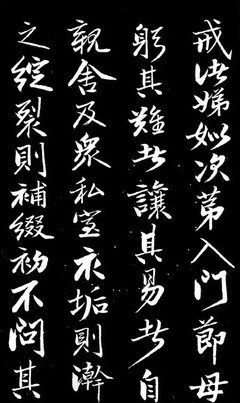 戒諸娣姒次第入門節母
躬其難者讓其易者自
親舍及衆私室衣垢則澣
之綻裂則補綴初不問其